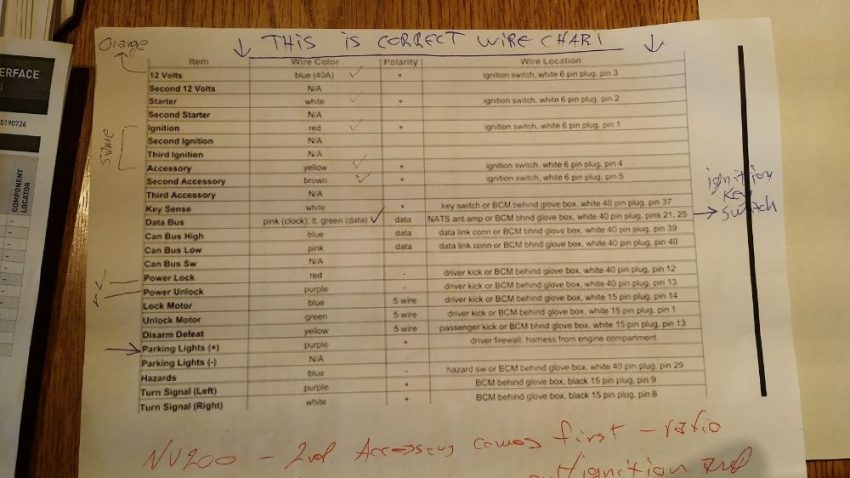 Orange
THIS IS CORRECT WIRE CHART
ERFACE
0190726
COMPONENT LOCATOR
Item Wire Color Polarity Wire Location
12 Volts blue (40A) + ignition switch, white 6 pin plug, pin 3
Second 12 Volts N/A
Starter white + ignition switch, white 6 pin plug, pin 2
Second Starter N/A
Ignition red + ignition switch, white 6 pin plug, pin 1
Second Ignition N/A
Third Ignition N/A
Accessory yellow + ignition switch, white 6 pin plug, pin 4
Second Accessory brown + ignition switch, white 6 pin plug, pin 5
Third Accessory N/A
Key Sense white + key switch or BCM behind glove box, white 40 pin plug, pin 37
Data Bus pink (clock); lt. green (data) data NATS ant amp or BCM bhnd glove box, white 40 pin plug, pins 21, 25
Can Bus High blue data data link conn or BCM bhnd glove box, white 40 pin plug, pin 39
Can Bus Low pink data data link conn or BCM bhnd glove box, white 40 pin plug, pin 40
Can Bus Sw N/A
Power Lock red - driver kick or BCM behind glove box, white 40 pin plug, pin 12
Power Unlock purple - driver kick or BCM behind glove box, white 40 pin plug, pin 13
Lock Motor blue 5 wire driver kick or BCM behind glove box, white 15 pin plug, pin 14
Unlock Motor green 5 wire driver kick or BCM behind glove box, white 15 pin plug, pin 1
Disarm Defeat yellow 5 wire passenger kick or BCM bhnd glove box, white 15 pin plug, pin 13
Parking Lights (+) purple + driver firewall, harness from engine compartment
Parking Lights (-) N/A
Hazards blue - hazard sw or BCM behind glove box, white 40 pin plug, pin 29
Turn Signal (Left) purple + BCM behind glove box, black 15 pin plug, pin 9
Turn Signal (Right) white + BCM behind glove box, black 15 pin plug, pin 8
ignition
Key
Switch
NV200 - 2nd Accessory comes first - radio
ignition